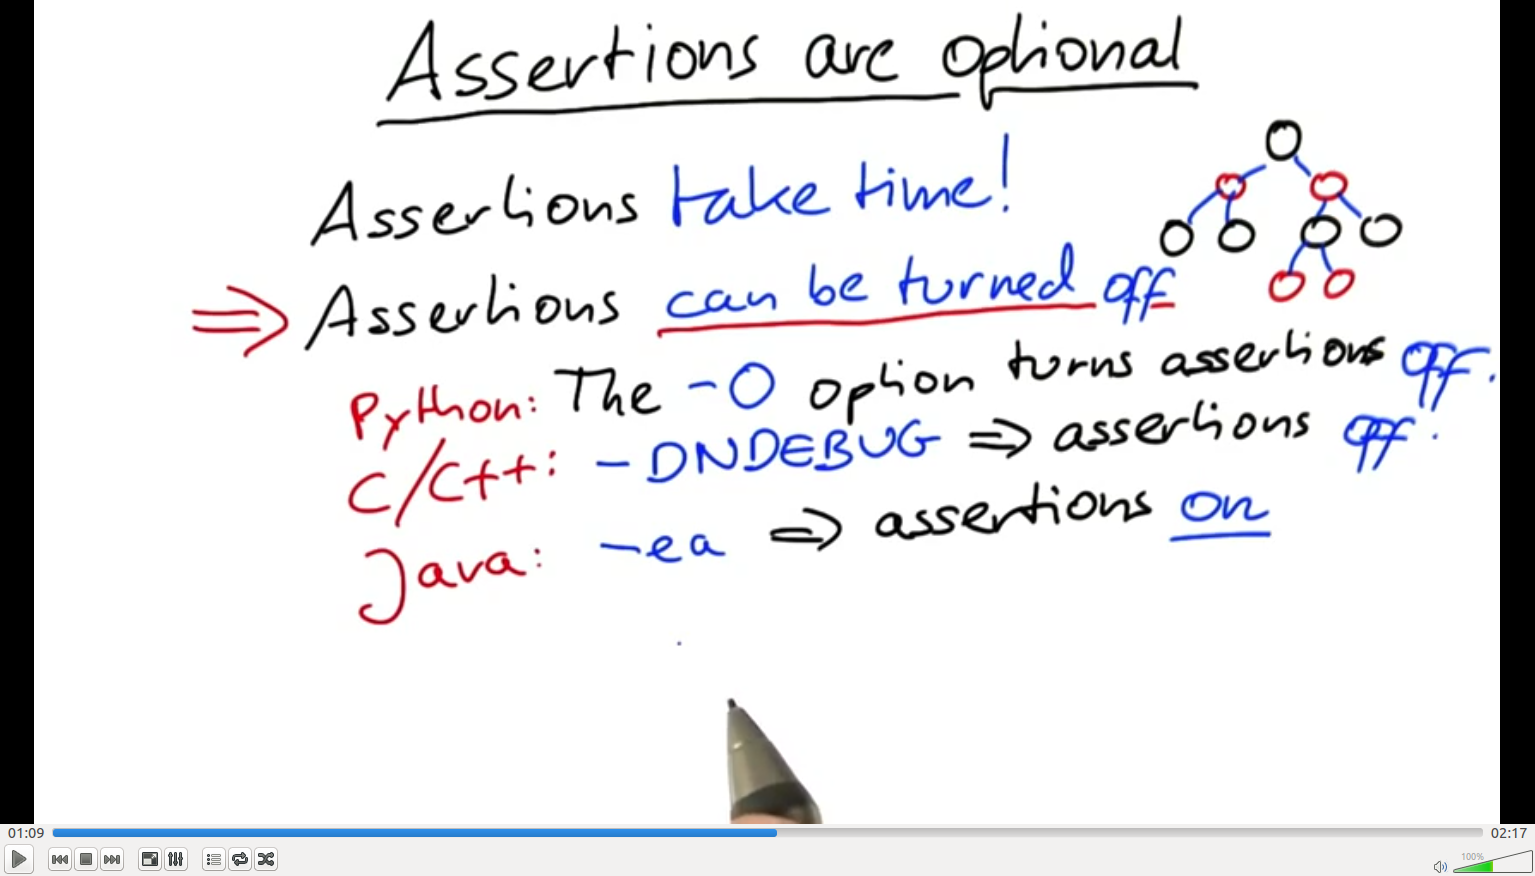 Assertions are optional
Assertions take time!
⇒ Assertions can be turned off
Python: The -O option turns assertions off.
C/C++: -DNDEBUG ⇒ assertions off.
Java: -ea ⇒ assertions on
01:09
02:17
100%